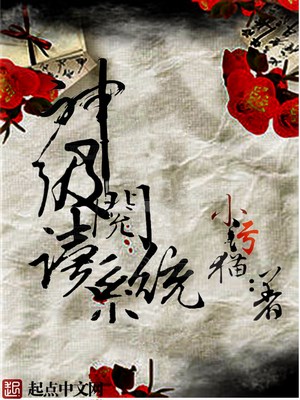 神级阅读系统
小猫:著
起点中文网